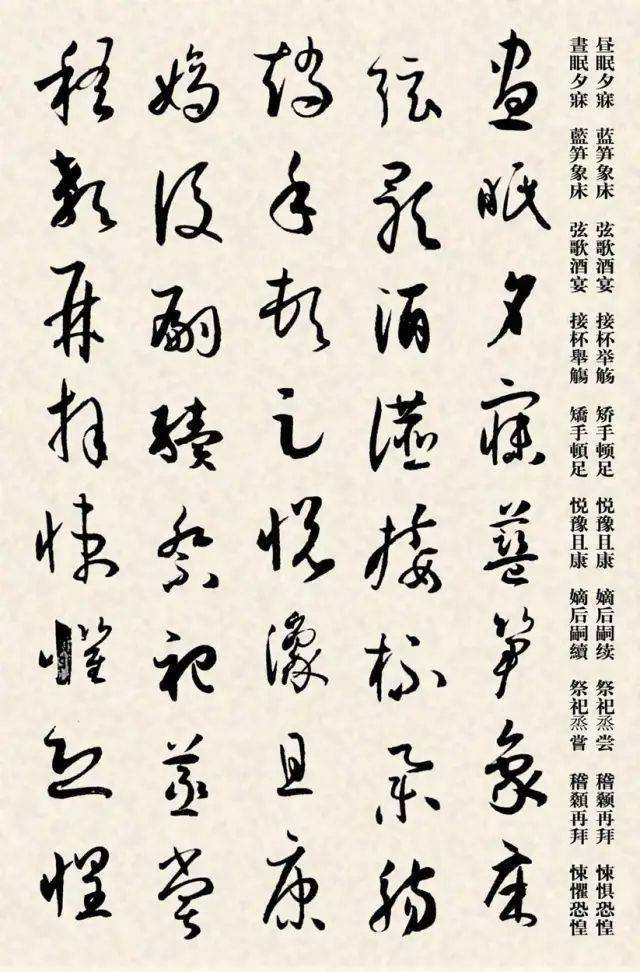 昼眠夕寐 蓝笋象床 弦歌酒宴 接杯举觞 矫手顿足 悦豫且康 嫡后嗣续 祭祀烝尝 稽颡再拜 悚惧恐惶
晝眠夕寐 藍笋象床 弦歌酒宴 接杯舉觴 矯手頓足 悅豫且康 嫡后嗣續 祭祀烝嘗 稽顙再拜 悚懼恐惶
晝眠夕寐藍笋象床
弦歌酒讌接杯舉觴
矯手頓足悅豫且康
嫡後嗣續祭祀蒸嘗
稽顙再拜悚懼恐惶